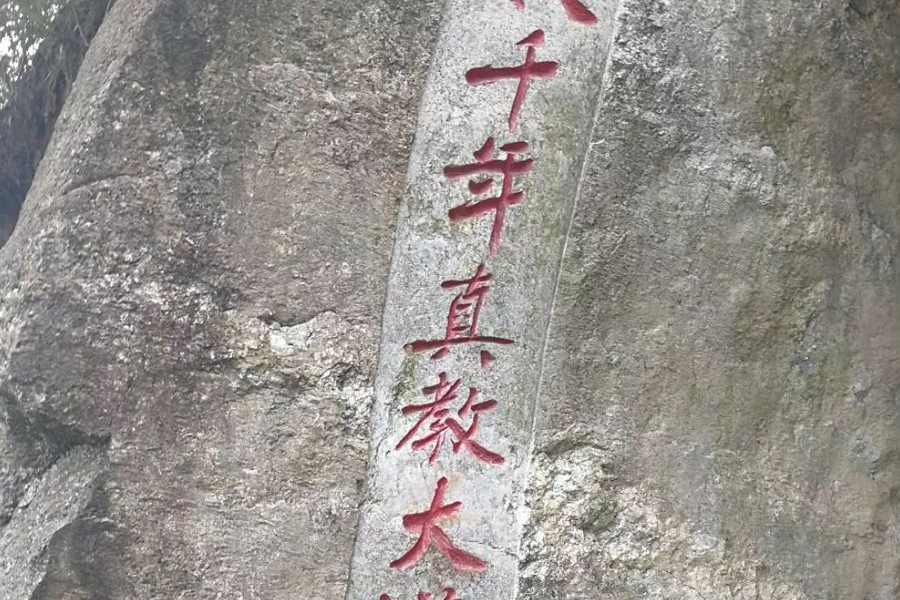 千年真教大